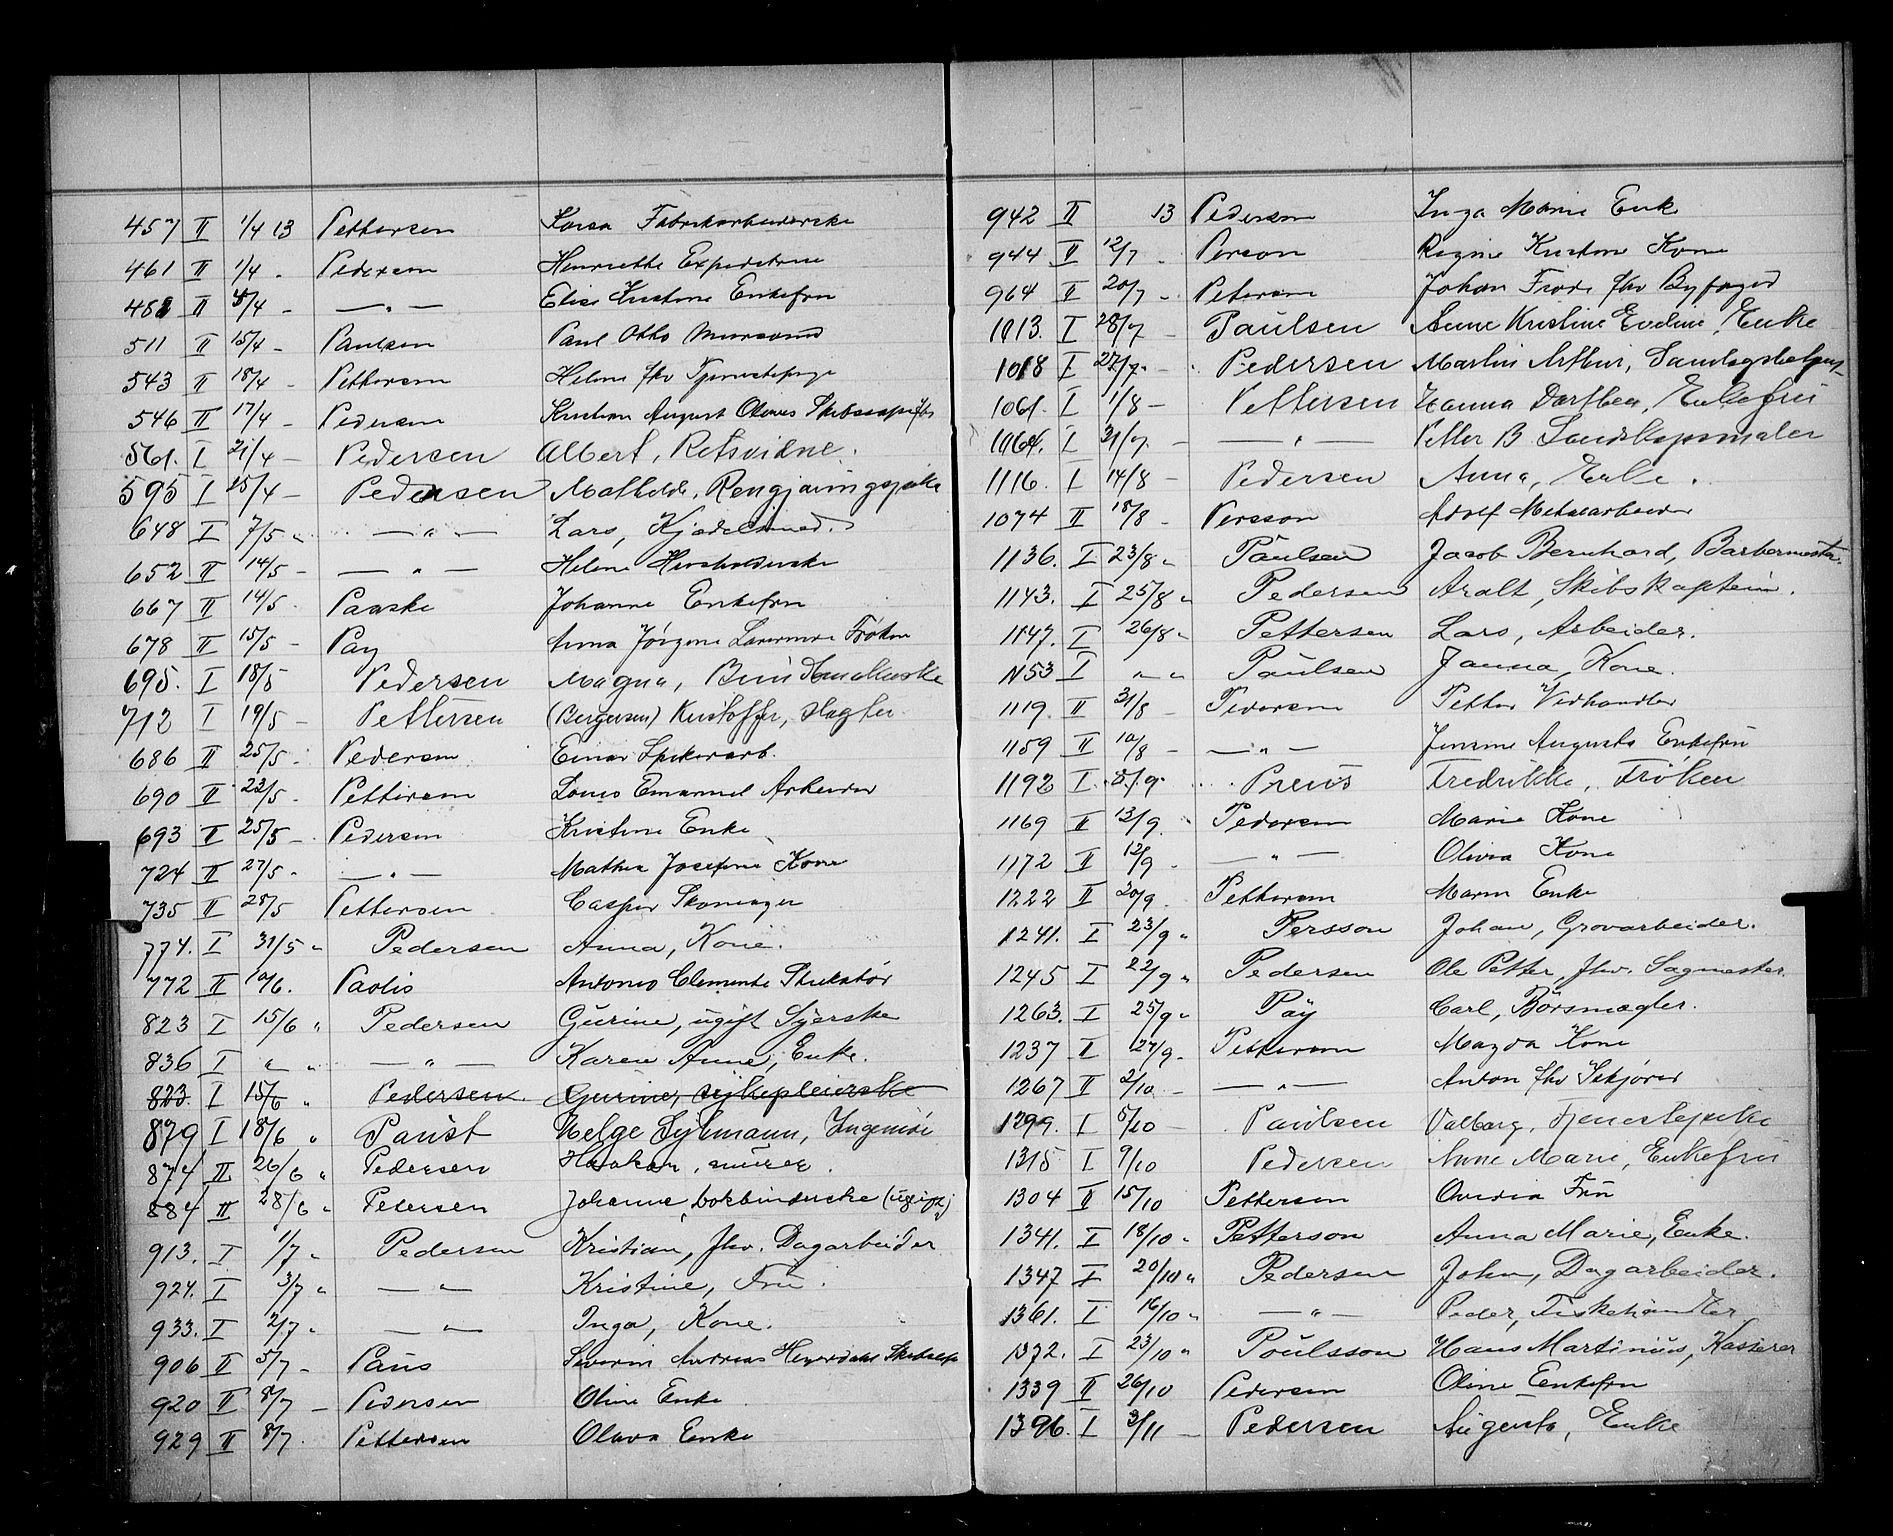 457 II 1/4 13 Pettersen Lovisa Fabrikarbeiderske
461 II 1/4 - Pedersen Henriette Expeditrice
481 II 5/4 - — " — Elise Kristine Enkefru
511 II 15/4 - Paulsen Paul Otto
543 II 18/4 - Pettersen Helene fhv Tjenestepige
546 II 17/4 - Pedersen Kristian August Olavus
561. I 21/4 — Pedersen Albert, Retsvidne.
595 I 25/4 — Pedersen Mathilde, Rengjøringspike
648 I 7/5 " — " — Lars, Kjedelsmed.
652 II 14/5 - — " — Helene Husholderske
667 II 14/5 . Paaske Johanne Enkefru
678 II 15/5 - Pay Anna Jørgine Frøken
695. I 18/5 Pedersen Magna,
712 I 19/5 - Pettersen (Bergersen) Kristoffer, slagter.
686 II 25/5 - Pedersen Einar Spikerarb.
690 II 23/5 - Pettersen Louis Emanuel Arbeider
693 II 25/5 - Pedersen Kristine Enke
724 II 27/5 - — " — Mathea Josefine Kone
735 II 28/5 Pettersen Casper Skomager
774. I 31/5 " Pedersen Anna, Kone.
772 II 10/6. Paolis Antonio Clemente Stukatør
823 I 15/6 " Pedersen Gurine, ugift Syerske
836 I " " — " — Karen Anne, Enke.
823. I 15/6 " Pedersen. Gurine, sykepleierske
879 I 18/6 " Paust Helge Sylmann, Ingeniør
874 II 26/6 " Pedersen Haakon, murer.
884 II 28/6 " Pedersen Johanne, bokbinderske (ugift)
913. I 1/7 " Pedersen Kristian, fhv. Dagarbeider
924. I 3/7 " — " — Kristine, Fru.
933. I 2/7 " — " — Inga, Kone.
906 II 5/7 - Paus Severin Andreas Heyerdahl
920 II 8/7 - Pedersen Oline Enke
929 II 8/7 . Pettersen Olava Enke
942 II 13 Pedersen Inga Marie Enke
944 II 12/7 - Person Regine Kristine Kone
964 II 20/7 - Petersen Johan Frode fhv Byfoged
1013. I 28/7 - Paulsen Anne Kristine Eveline, Enke
1018 I 27/7 - Pedersen Martin Arthur,
1061. I 1/8 — Pettersen Hanna Dorthea, Enkefru
1064. I 31/7. — — " — Petter B. Landskapsmaler
1116. I 14/8 - Pedersen Anna, Enke.
1074 II 18/8 - Persson Adolf Metalarbeider
1136. I 23/8 " Paulsen Jacob Bernhard, Barbermester.
1143. I 25/8 " Pedersen Aralt, Skibskaptein.
1147. I 26/8 " Pettersen Lars, Arbeider.
1153 I " " Paulsen Janna, Kone.
1119. II 31/8 - Pedersen Petter Vedhandler
1159 II 10/8 - — " — Jensine Augusta Enkefru
1192 I 8/9 - Preus Fredrikke, Frøken
1169 II 13/9. Pedersen Marie Kone
1172 II 12/9 - — " — Olivia Kone
1222 II 20/9. Pettersen Maren Enke
1241. I 23/9 " Persson Johan, Grovarbeider.
1245 I 22/9 " Pedersen Ole Petter, fhv. Sagmester
1263. I 25/9 " Pay Carl, Børsmægler.
1237 II 27/9. Pettersen Magda Kone
1267 II 2/10 - — " — Anton fhv
1299. I 5/10 - Paulsen Valborg, Tjenestepike
1315 I 9/10 Pedersen Anne Marie, Enkefru
1304 II 15/10 Petterson Fru
1341. I 18/10 " Petterson Anna Marie, Enke.
1347 I 20/10 " Pedersen John, Dagarbeider.
1361. I 16/10 " — " — Peder, Fiskehandler
1372. I 23/10 " Poulsson Hans Martinius, Kasserer
1339 II 26/10 Pedersen Oline Enkefru
1396. I 3/11 - Pedersen Augusta, Enke